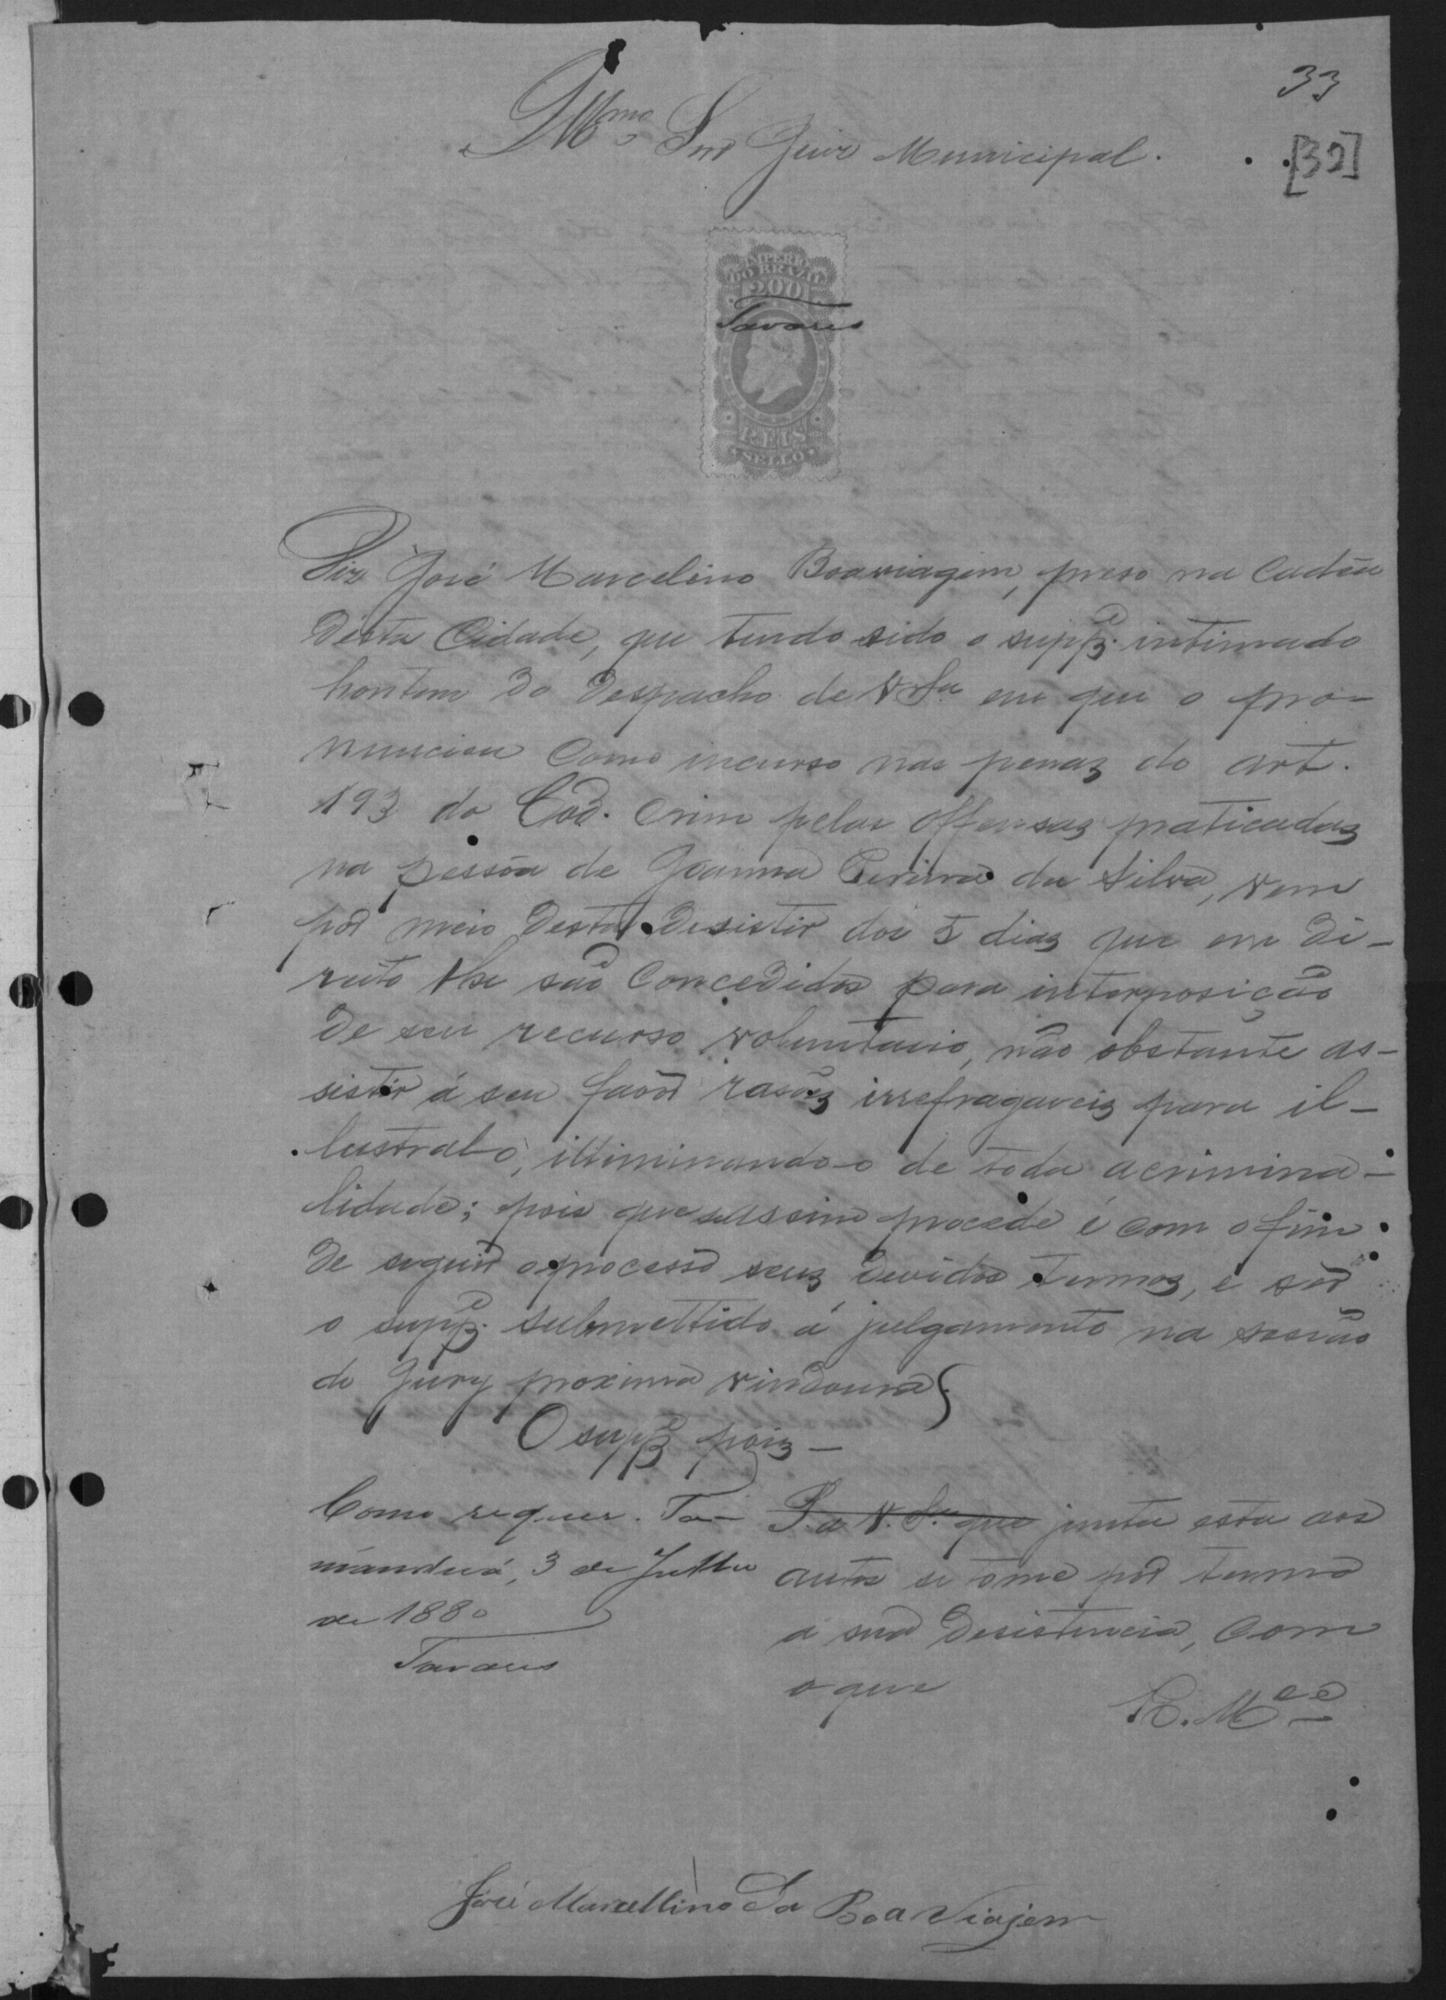 33
Illmo Snr Juiz Municipal.
[32]
IMPERIO
DO BRAZIL
200
Tavares
REIS
SELLO
Diz José Marcelino Boaviagem, preso na Cadêa
desta Cidade, que tendo sido o suppe. intimado
hontem do despacho de VSa em que o pro-
nunciou como incurso nas penas do art.
193 do Cod. Crim pelas offensas praticadas
na pessôa de Joanna Pereira da Silva, vem
por meio desta desistir dos 5 dias que em di-
reito lhe são concedidos para interposição
de seu recurso voluntario, não obstante as-
sistir á seu favor rasões irrefragaveis para il-
lustral-o, illiminando-o de toda a crimina-
lidade; pois que assim procede é com o fim
de seguir o processo seus devidos termos, e ser
o suppe. submettido á julgamento na sessão
do Jury proxima vindoura.
O suppe pois—
P. a V. Sa que junta esta aos
autos se tome por termo
a sua desistencia, com
o que
R. Mce
Como requer. Ta-
manduá, 3 de Julho
de 1880
Tavares
José Marcellino Da Boa Viajem